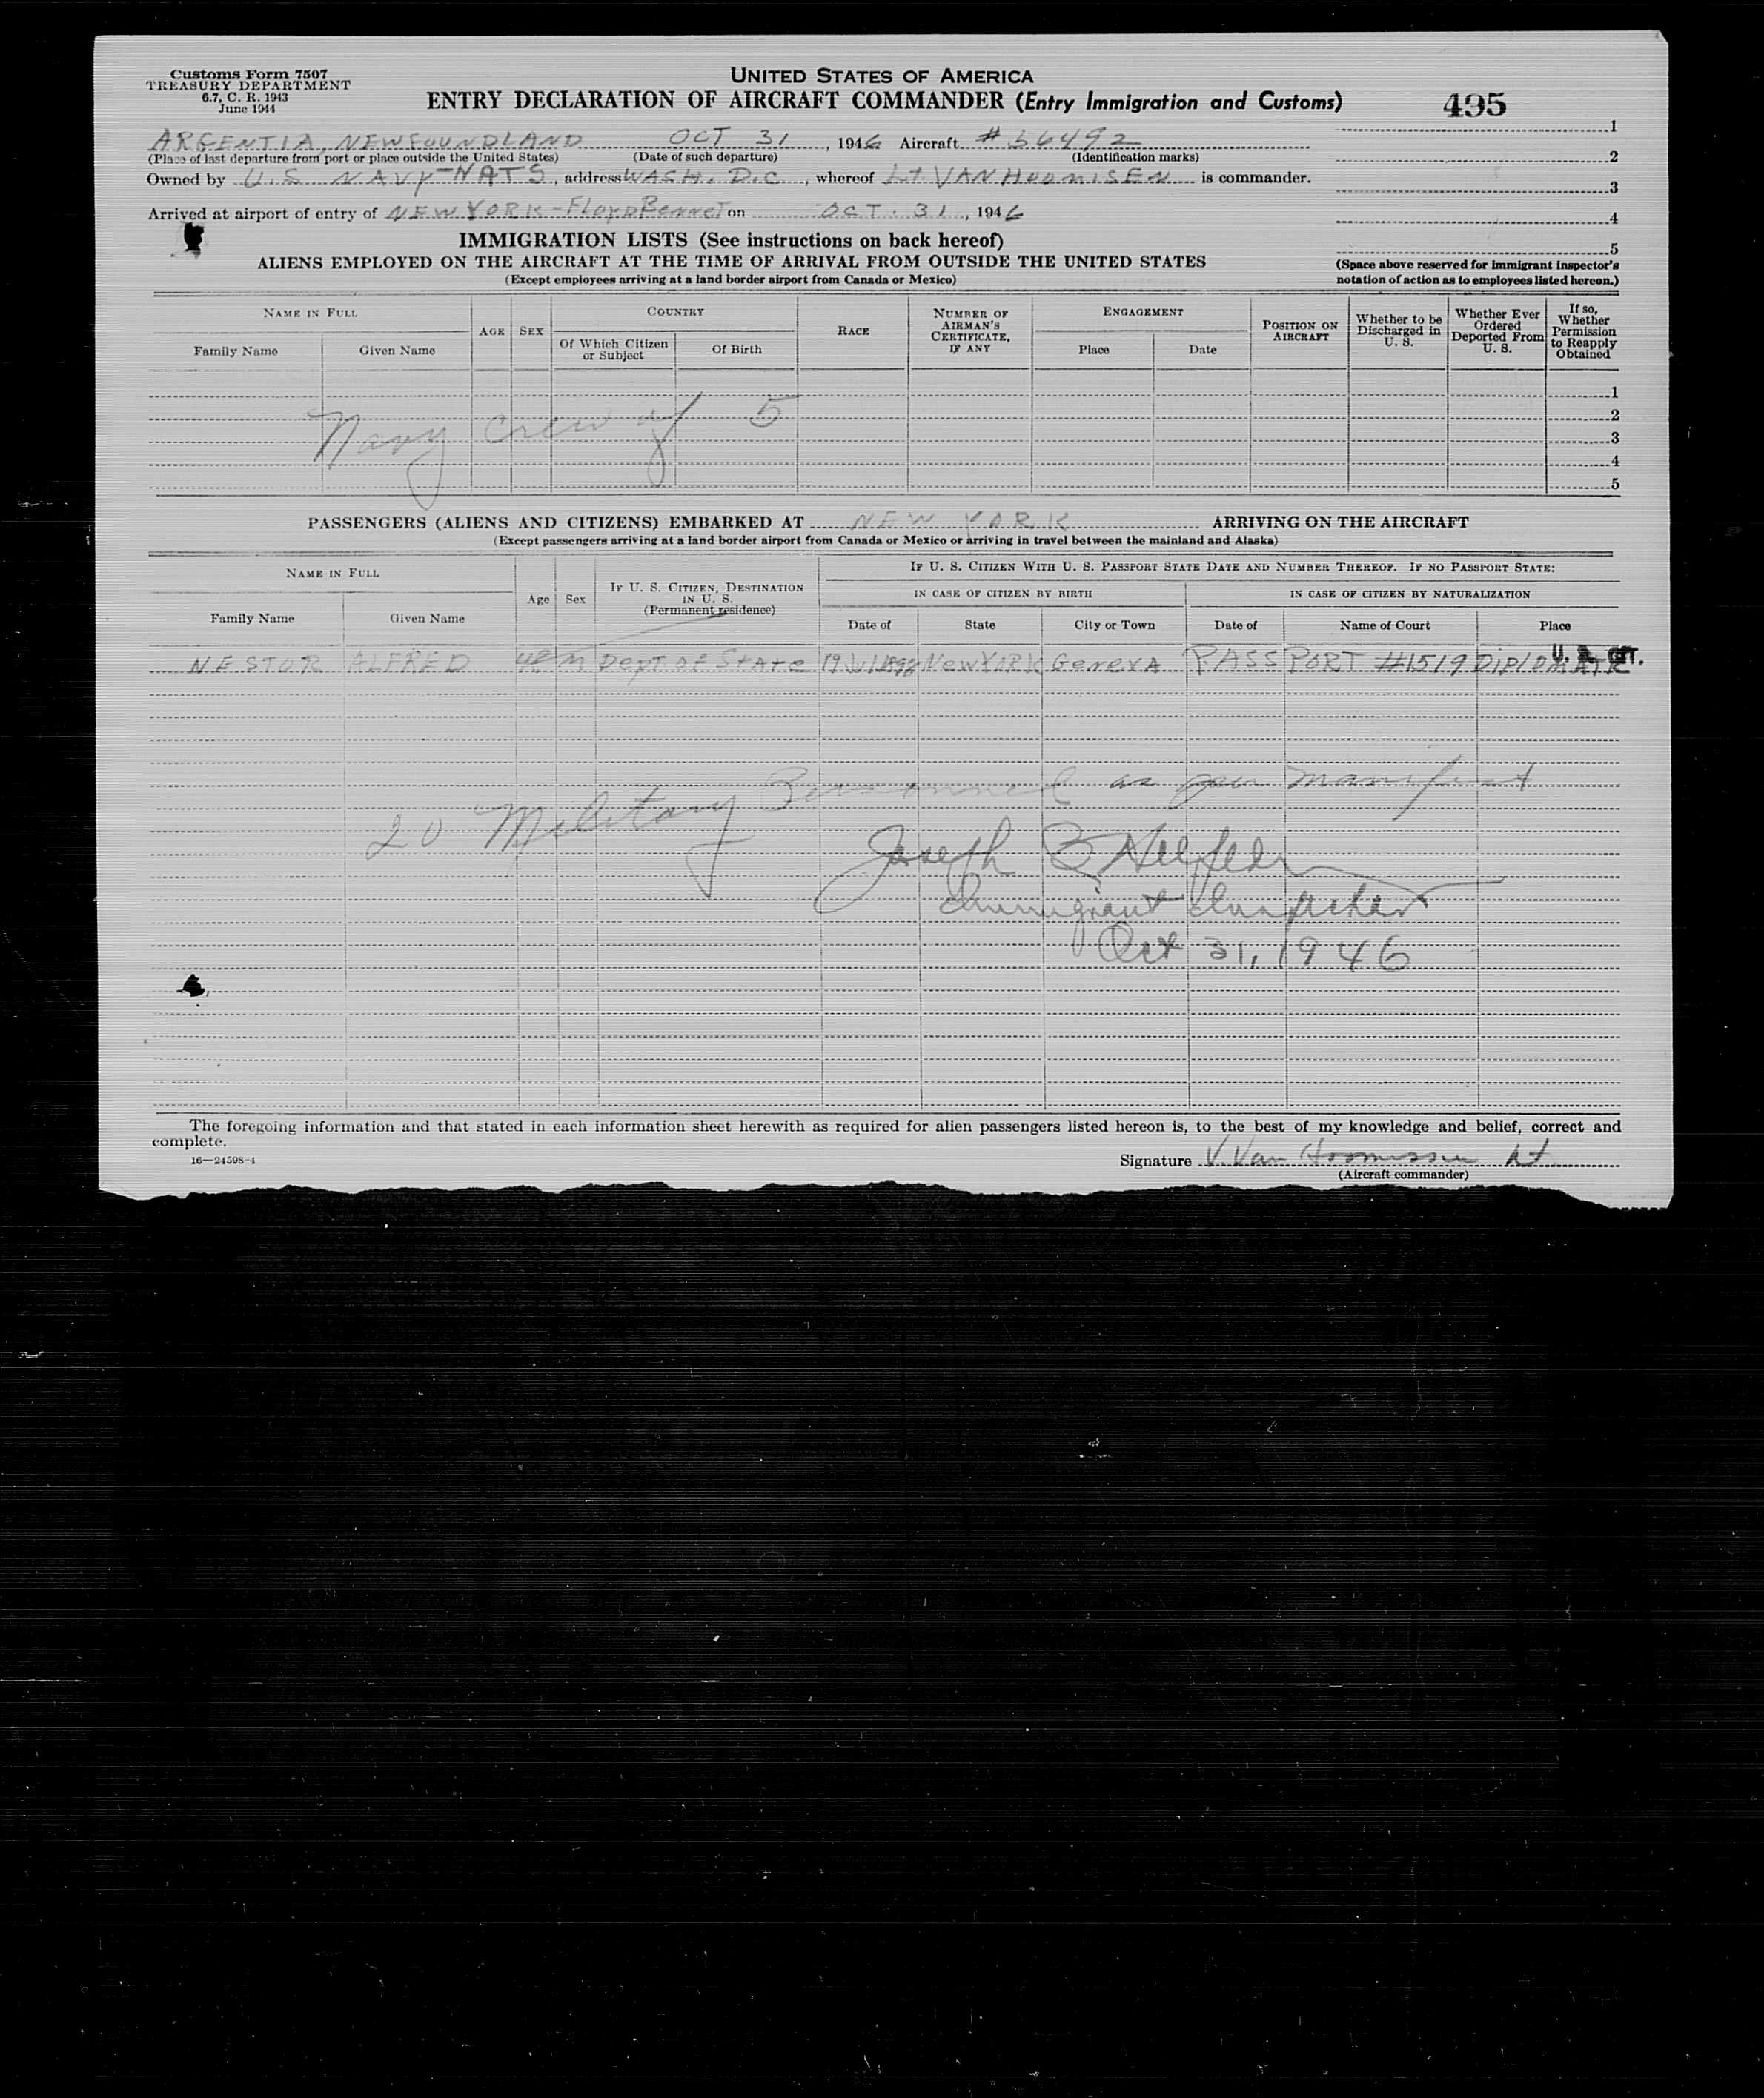 Customs Form 7507
TREASURY DEPARTMENT
6.7, C. R. 1943
June 1944
UNITED STATES OF AMERICA
ENTRY DECLARATION OF AIRCRAFT COMMANDER (Entry Immigration and Customs)
495
ARGENTIA, NEWFOUNDLAND OCT 31, 1946 Aircraft #56492
(Place of last departure from port or place outside the United States) (Date of such departure) (Identification marks)
Owned by U.S NAVY-NATS, address WASH. D.C, whereof Lt. VAN HOOMISEN is commander.
Arrived at airport of entry of NEW YORK-Floyd Bennet on OCT. 31, 1946
1
2
3
4
5
(Space above reserved for Immigrant Inspector's notation of action as to employees listed hereon.)
IMMIGRATION LISTS (See instructions on back hereof)
ALIENS EMPLOYED ON THE AIRCRAFT AT THE TIME OF ARRIVAL FROM OUTSIDE THE UNITED STATES
(Except employees arriving at a land border airport from Canada or Mexico)
NAME IN FULL
Family Name Given Name
AGE SEX
COUNTRY
Of Which Citizen or Subject Of Birth
RACE
NUMBER OF AIRMAN'S CERTIFICATE, IF ANY
ENGAGEMENT
Place Date
POSITION ON AIRCRAFT
Whether to be Discharged in U. S.
Whether Ever Ordered Deported From U. S.
If so, Whether Permission to Reapply Obtained
1
2
3
4
5
Navy Crew of 5
PASSENGERS (ALIENS AND CITIZENS) EMBARKED AT NEW YORK ARRIVING ON THE AIRCRAFT
(Except passengers arriving at a land border airport from Canada or Mexico or arriving in travel between the mainland and Alaska)
NAME IN FULL
Family Name Given Name
Age Sex
IF U. S. CITIZEN, DESTINATION IN U. S.
(Permanent residence)
IF U. S. CITIZEN WITH U. S. PASSPORT STATE DATE AND NUMBER THEREOF. IF NO PASSPORT STATE:
IN CASE OF CITIZEN BY BIRTH IN CASE OF CITIZEN BY NATURALIZATION
Date of State City or Town Date of Name of Court Place
NESTOR ALFRED 48 M Dept. of State 19 Jul 1898 New YORK Geneva PASSPORT #1519 Diplomatic
20 Military Personnel as per manifest
Joseph
Immigrant Inspector
Oct 31, 1946
The foregoing information and that stated in each information sheet herewith as required for alien passengers listed hereon is, to the best of my knowledge and belief, correct and
complete.
16—24598-4
Signature V. Van Hoomissen Lt
(Aircraft commander)